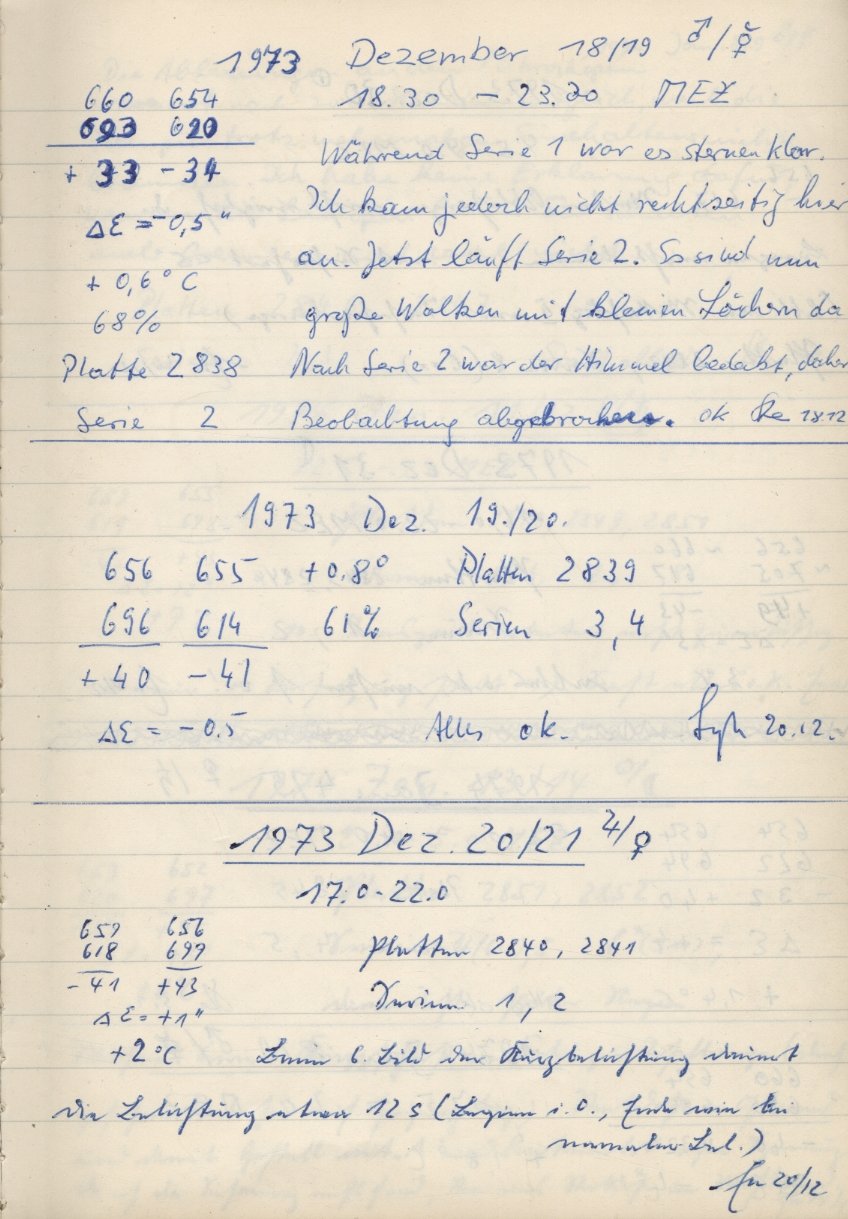 1973 Dezember 18/19 ♂/☿
660 654 18.30 – 23.30 MEZ
693 620
+ 33 - 34 Während Serie 1 war es sternenklar.
ΔE = -0,5" Ich kam jedoch nicht rechtzeitig hier
an. Jetzt läuft Serie 2. Es sind nun
+ 0,6° C große Wolken mit kleinen Löchern da
68%
Platte 2838 Nach Serie 2 war der Himmel bedeckt, daher
Serie 2 Beobachtung abgebrochen. ok 18.12
1973 Dez. 19./20.
656 655 +0.8° Platten 2839
696 614 61% Serien 3, 4
+ 40 - 41
ΔE = - 0.5 Alles ok. 20.12.
1973 Dez. 20/21 ♃/♀
17.0-22.0
659 656
618 699 Platten 2840, 2841
- 41 +43
ΔE = +1" Serien 1, 2
+2°C Beim 6. Bild der Kurzbelichtung dauert
die Belichtung etwa 12 s (Beginn i.O., Ende wie bei
normaler Bel.)
20/12